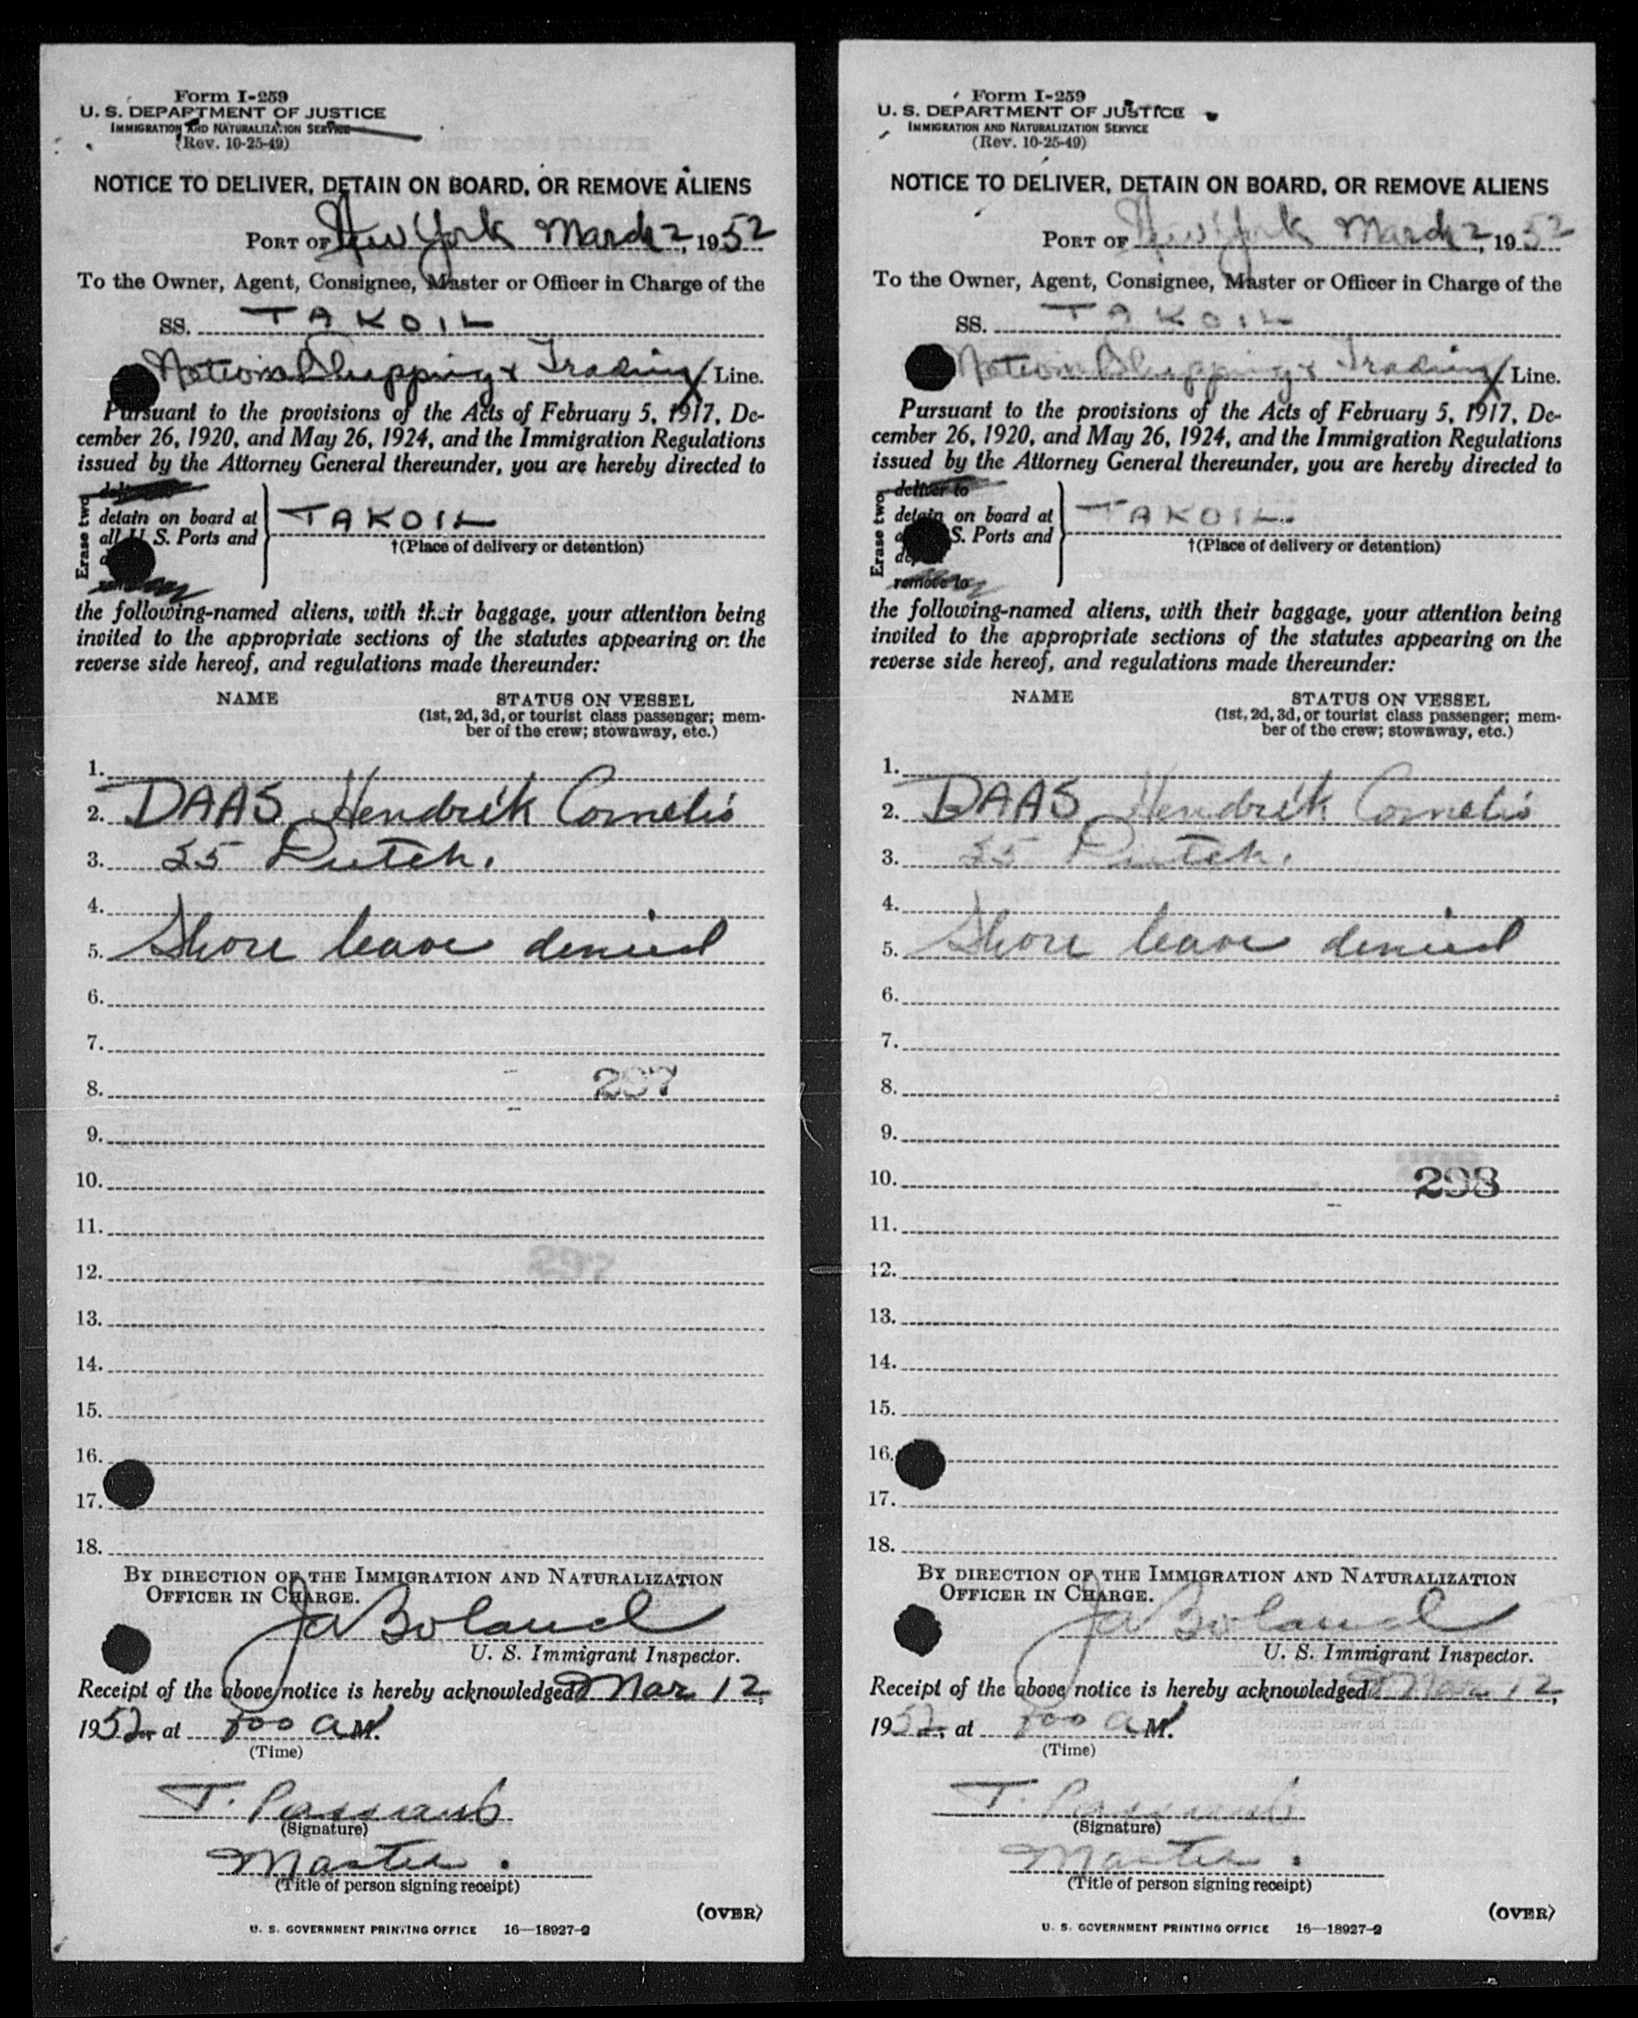 Form I-259
U. S. DEPARTMENT OF JUSTICE
IMMIGRATION AND NATURALIZATION SERVICE
(Rev. 10-25-49)
NOTICE TO DELIVER, DETAIN ON BOARD, OR REMOVE ALIENS
PORT OF New York March 2, 1952
To the Owner, Agent, Consignee, Master or Officer in Charge of the
SS. TAKOIL
Shipping & Trading Line.
Pursuant to the provisions of the Acts of February 5, 1917, De-
cember 26, 1920, and May 26, 1924, and the Immigration Regulations
issued by the Attorney General thereunder, you are hereby directed to
Erase two
detain on board at
all U. S. Ports and
TAKOIL
†(Place of delivery or detention)
the following-named aliens, with their baggage, your attention being
invited to the appropriate sections of the statutes appearing on the
reverse side hereof, and regulations made thereunder:
NAME STATUS ON VESSEL
(1st, 2d, 3d, or tourist class passenger; mem-
ber of the crew; stowaway, etc.)
1.
2. DAAS Hendrik Cornelis
3. 25 Dutch.
4.
5. Shore leave denied
6.
7.
8. 297
9.
10.
11.
12. 297
13.
14.
15.
16.
17.
18.
BY DIRECTION OF THE IMMIGRATION AND NATURALIZATION
OFFICER IN CHARGE.
JA Boland
U. S. Immigrant Inspector.
Receipt of the above notice is hereby acknowledged Mar 12,
1952, at 800 a M.
(Time)
T.
(Signature)
Master.
(Title of person signing receipt)
(OVER)
U. S. GOVERNMENT PRINTING OFFICE 16—18927-2
Form I-259
U. S. DEPARTMENT OF JUSTICE
IMMIGRATION AND NATURALIZATION SERVICE
(Rev. 10-25-49)
NOTICE TO DELIVER, DETAIN ON BOARD, OR REMOVE ALIENS
PORT OF New York March 2, 1952
To the Owner, Agent, Consignee, Master or Officer in Charge of the
SS. TAKOIL
Shipping & Trading Line.
Pursuant to the provisions of the Acts of February 5, 1917, De-
cember 26, 1920, and May 26, 1924, and the Immigration Regulations
issued by the Attorney General thereunder, you are hereby directed to
Erase two
deliver to
detain on board at
S. Ports and
remove to
TAKOIL.
†(Place of delivery or detention)
the following-named aliens, with their baggage, your attention being
invited to the appropriate sections of the statutes appearing on the
reverse side hereof, and regulations made thereunder:
NAME STATUS ON VESSEL
(1st, 2d, 3d, or tourist class passenger; mem-
ber of the crew; stowaway, etc.)
1.
2. DAAS Hendrik Cornelis
3. 25 Dutch.
4.
5. Shore leave denied
6.
7.
8.
9.
10. 298
11.
12.
13.
14.
15.
16.
17.
18.
BY DIRECTION OF THE IMMIGRATION AND NATURALIZATION
OFFICER IN CHARGE.
JA Boland
U. S. Immigrant Inspector.
Receipt of the above notice is hereby acknowledged Mar 12,
1952, at 800 a M.
(Time)
T.
(Signature)
Master.
(Title of person signing receipt)
(OVER)
U. S. GOVERNMENT PRINTING OFFICE 16—18927-2